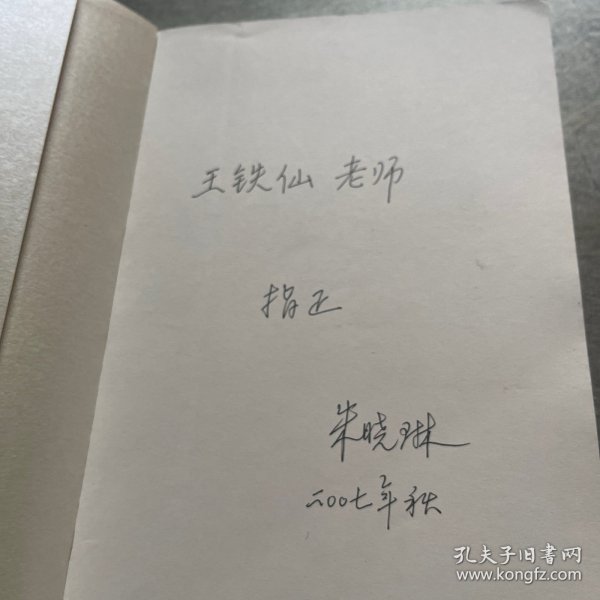 王铁仙 老师
指正
朱晓琳
二00七年秋
孔夫子旧書网
www.kongfz.com